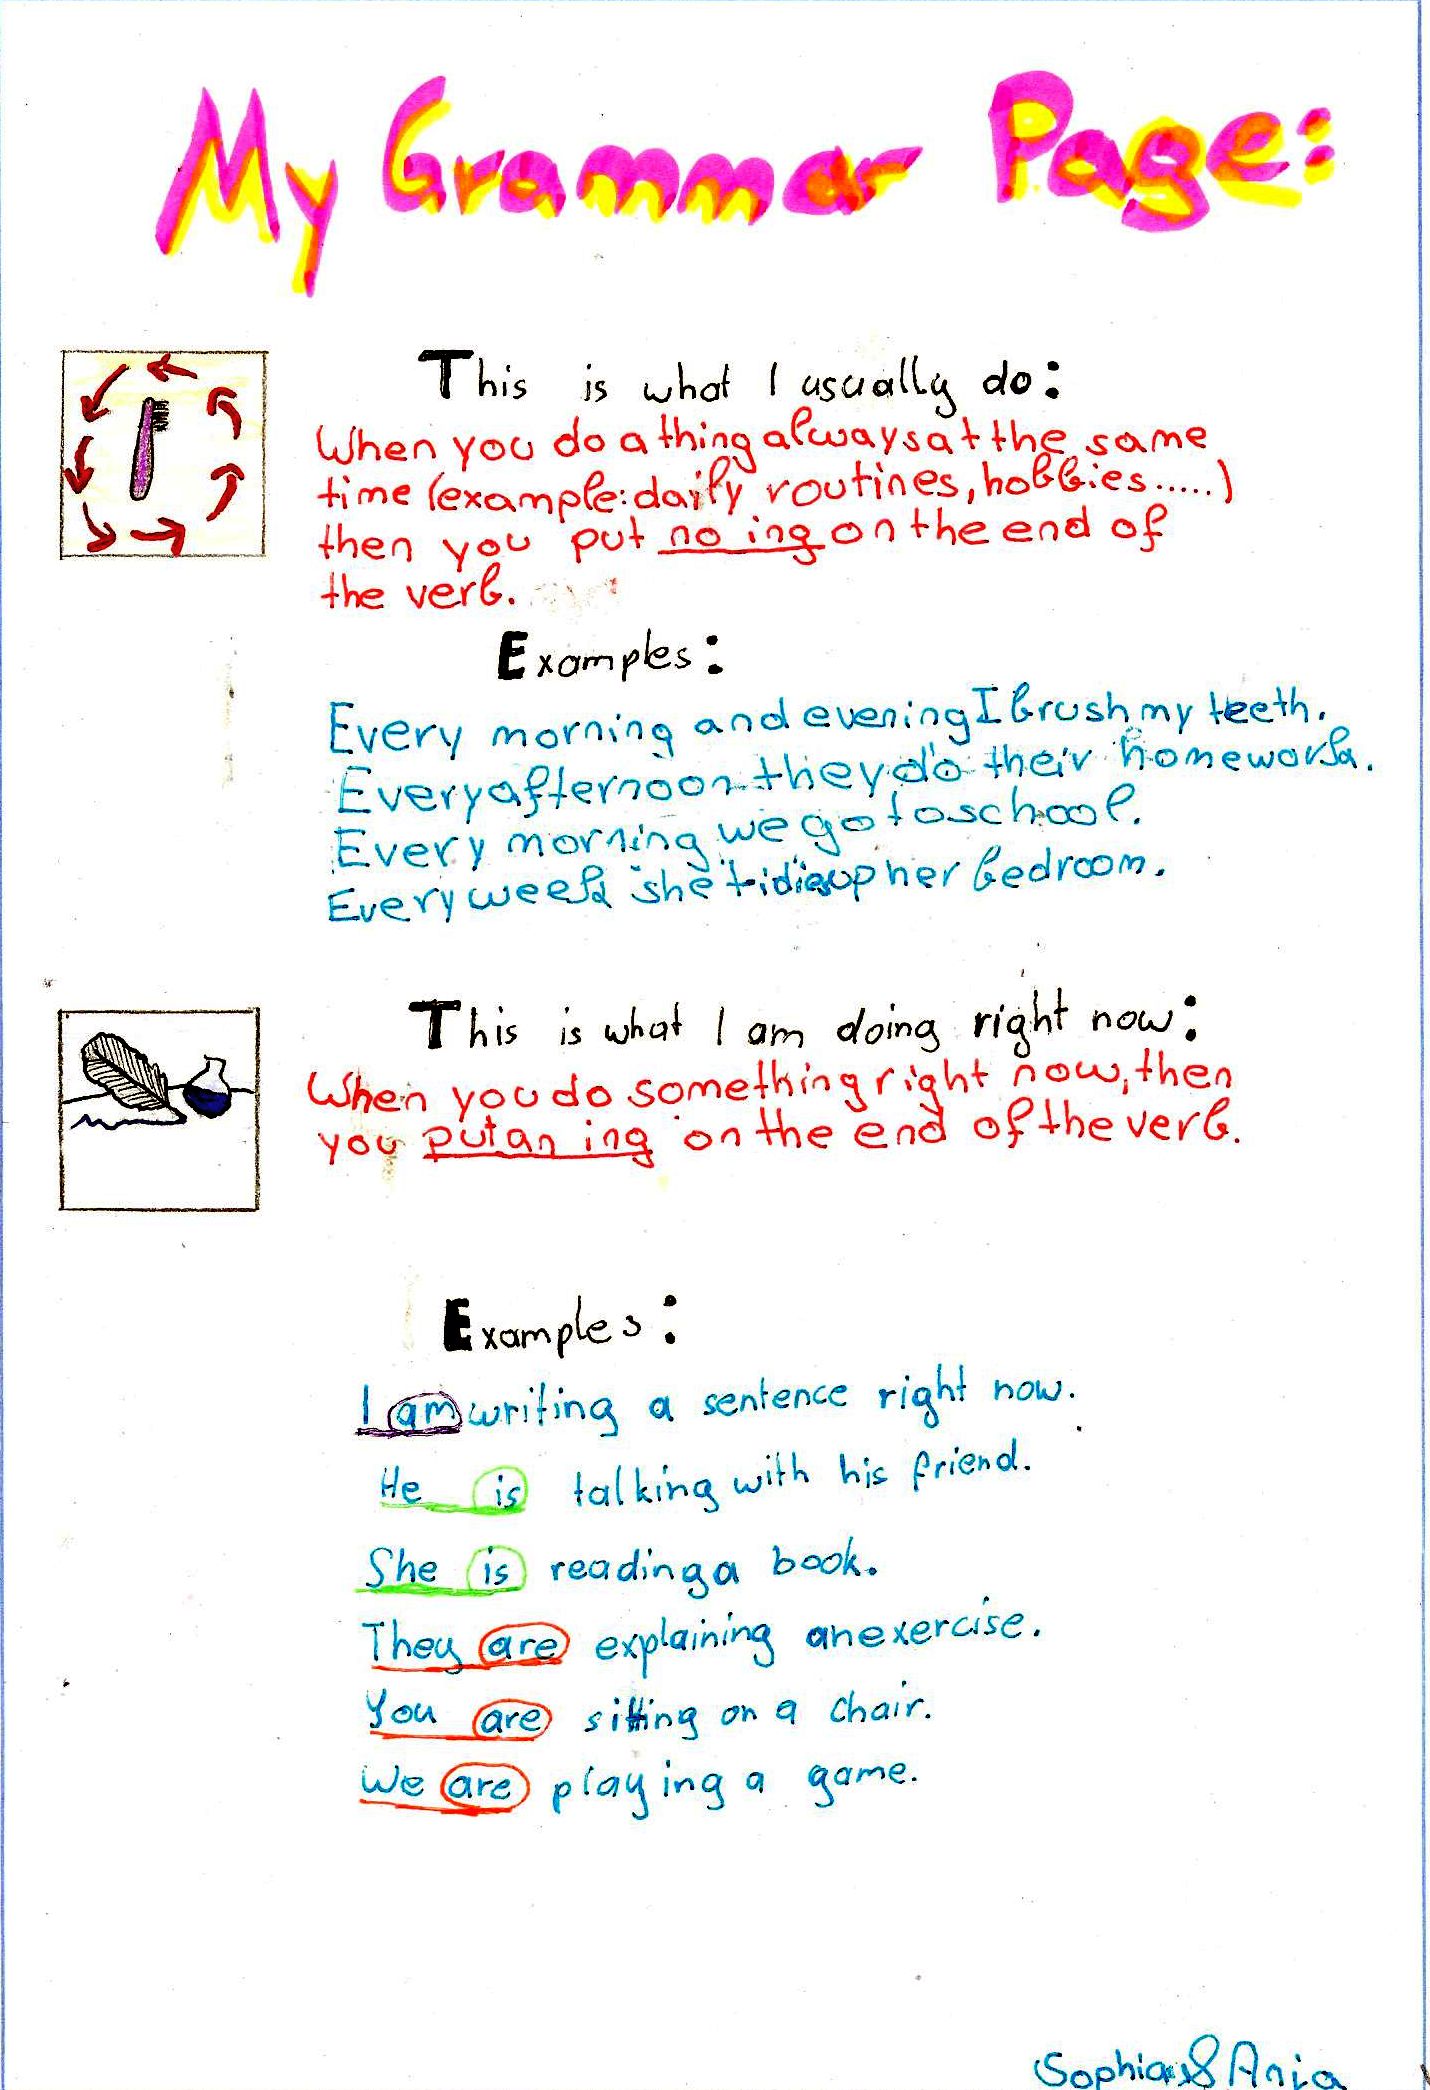 My Grammar Page:
This is what I usually do:
When you do a thing always at the same
time (example: daily routines, hobbies.....)
then you put no ing on the end of
the verb.
Examples:
Every morning and evening I brush my teeth.
Every afternoon they do their homework.
Every morning we go to school.
Every week she tidies up her bedroom.
This is what I am doing right now:
When you do something right now, then
you put an ing on the end of the verb.
Examples:
I am writing a sentence right now.
He is talking with his friend.
She is reading a book.
They are explaining an exercise.
You are sitting on a chair.
We are playing a game.
Sophia & Ania